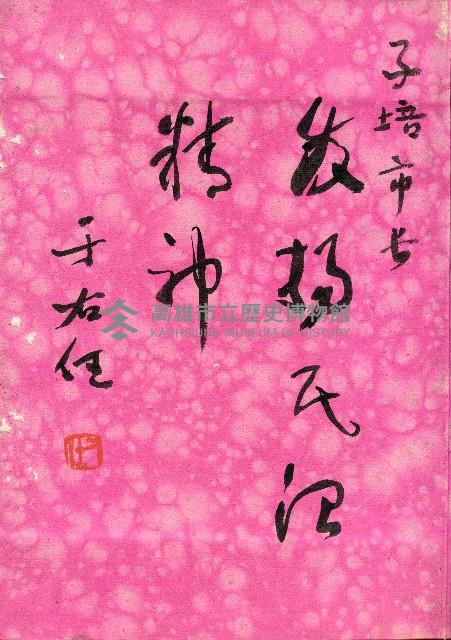 子培市长
发扬民治
精神
于右任
高雄市立歷史博物館
KAOHSIUNG MUSEUM OF HISTORY